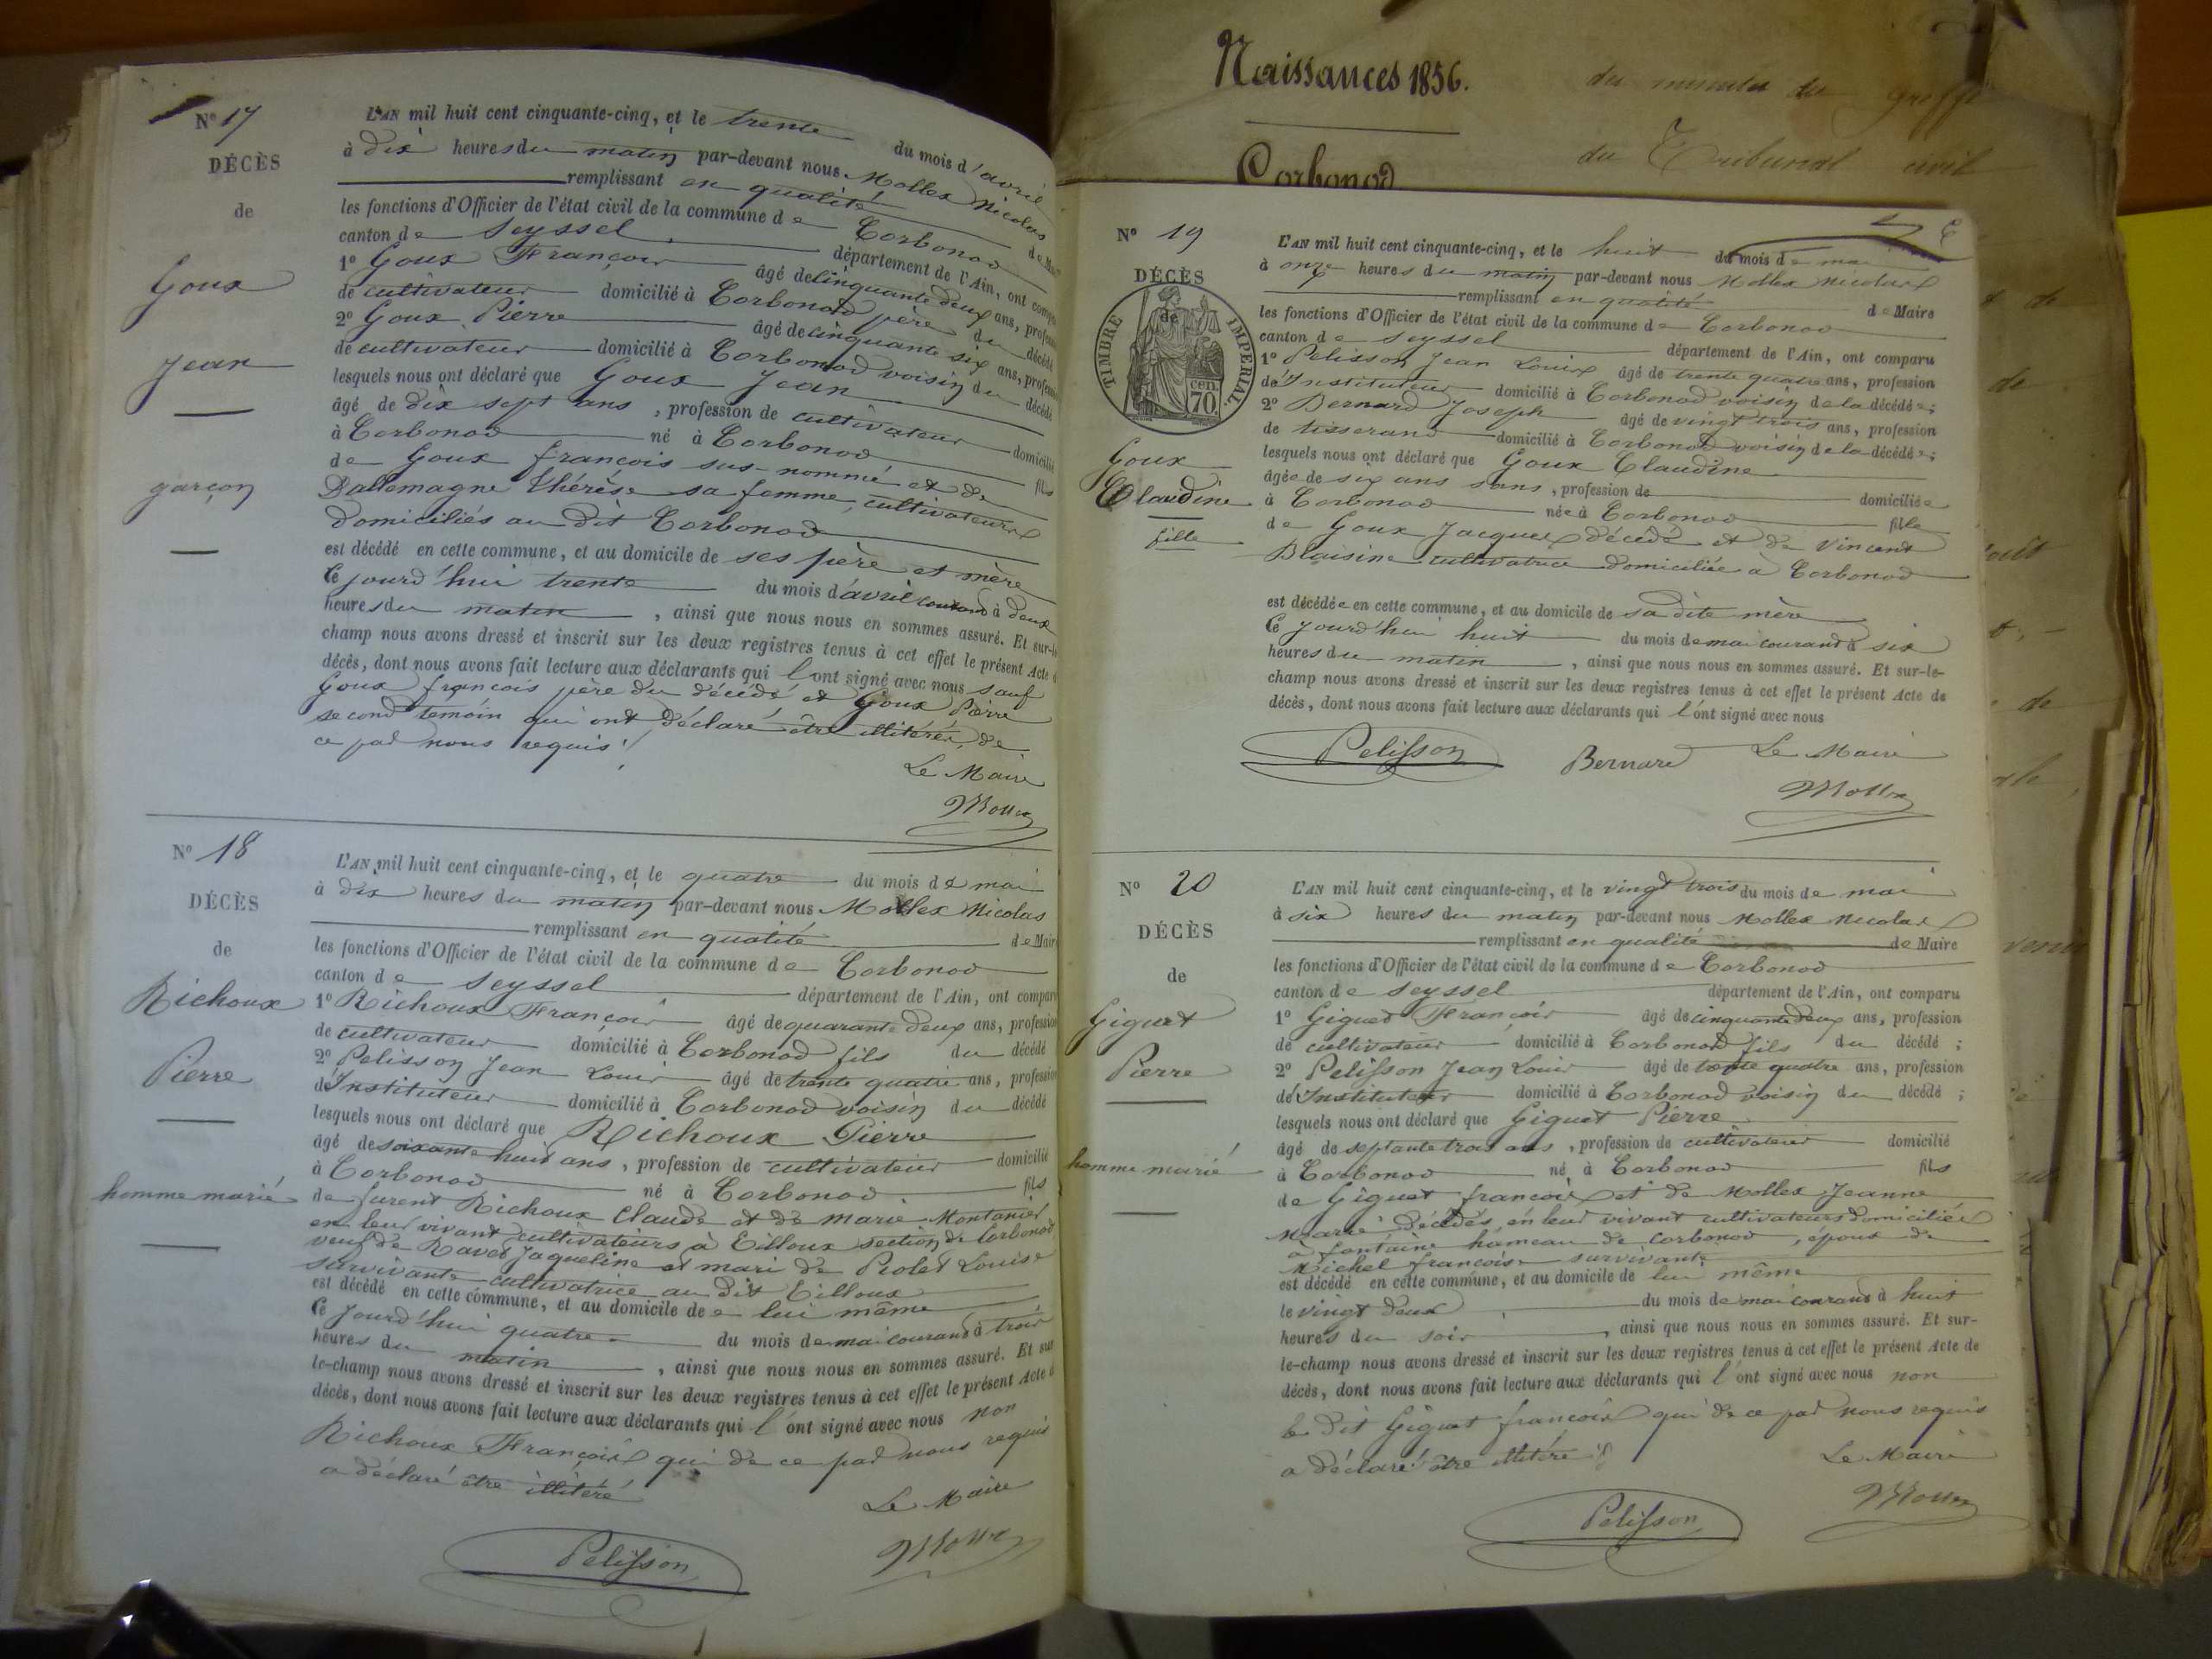 Nº 17
DÉCÈS
de
Goux
Jean
garçon
L'AN mil huit cent cinquante-cinq, et le trente du mois d'avril
à dix heures du matin par-devant nous Mollex Nicolas
remplissant en qualité de
les fonctions d'Officier de l'état civil de la commune de Corbonod
canton de Seyssel département de l'Ain, ont
1º Goux François âgé de cinquante deux ans,
de cultivateur domicilié à Corbonod père du décédé
2º Goux Pierre âgé de cinquante six ans,
de cultivateur domicilié à Corbonod voisin du décédé
lesquels nous ont déclaré que Goux Jean
âgé de dix sept ans, profession de cultivateur domicilié
à Corbonod né à Corbonod fils
de Goux françois sus-nommé et de
Dallemagne Thérèse sa femme, cultivateurs
domiciliés au dit Corbonod
est décédé en cette commune, et au domicile de ses père et mère
Ce jourd'hui trente du mois d'avril courant à deux
heures du matin, ainsi que nous nous en sommes assuré. Et sur-le-
champ nous avons dressé et inscrit sur les deux registres tenus à cet effet le présent Acte
décès, dont nous avons fait lecture aux déclarants qui l'ont signé avec nous sauf
Goux françois père du décédé et Goux Pierre
second témoin qui ont déclaré être illitérés, de
ce par nous requis
Le Maire
Mollex
Nº 18
DÉCÈS
de
Richoux
Pierre
homme marié
L'AN mil huit cent cinquante-cinq, et le quatre du mois de mai
à dix heures du matin par-devant nous Mollex Nicolas
remplissant en qualité de Maire
les fonctions d'Officier de l'état civil de la commune de Corbonod
canton de Seyssel département de l'Ain, ont comparu
1º Richoux François âgé de quarante deux ans, profession
de cultivateur domicilié à Corbonod fils du décédé
2º Pelisson Jean Louis âgé de trente quatre ans, profession
d'Instituteur domicilié à Corbonod voisin du décédé
lesquels nous ont déclaré que Richoux Pierre
âgé de soixante huit ans, profession de cultivateur domicilié
à Corbonod né à Corbonod fils
de furent Richoux Claude et de marie Montanier
en leur vivant cultivateurs à Eilloux section de Corbonod
veuf de Ravot Jaqueline et mari de Prolet Louise
survivante cultivatrice au dit Eilloux
est décédé en cette commune, et au domicile de lui même
Ce jourd'hui quatre du mois de mai courant à trois
heures du matin, ainsi que nous nous en sommes assuré. Et sur
le-champ nous avons dressé et inscrit sur les deux registres tenus à cet effet le présent Acte
décès, dont nous avons fait lecture aux déclarants qui l'ont signé avec nous non
Richoux François qui de ce par nous requis
a déclaré être illitéré
Le Maire
Pelisson Mollex
Naissances 1856.
Corbonod
des minutes du greffe
du Tribunal civil
Nº 19
DÉCÈS
de
TIMBRE IMPERIAL
70 cen.
Goux
Claudine
fille
L'AN mil huit cent cinquante-cinq, et le huit du mois de mai
à onze heures du matin par-devant nous Mollex Nicolas
remplissant en qualité de Maire
les fonctions d'Officier de l'état civil de la commune de Corbonod
canton de Seyssel département de l'Ain, ont comparu
1º Pelisson Jean Louis âgé de trente quatre ans, profession
d'Instituteur domicilié à Corbonod voisin de la décédée;
2º Bernard Joseph âgé de vingt trois ans, profession
de tisserand domicilié à Corbonod voisin de la décédée;
lesquels nous ont déclaré que Goux Claudine
âgée de six ans sans, profession de domiciliée
à Corbonod née à Corbonod fille
de Goux Jacques décédé et de Vincent
Blaisine cultivatrice domiciliée à Corbonod
est décédée en cette commune, et au domicile de sa dite mère
Ce jourd'hui huit du mois de mai courant à six
heures du matin, ainsi que nous nous en sommes assuré. Et sur-le-
champ nous avons dressé et inscrit sur les deux registres tenus à cet effet le présent Acte de
décès, dont nous avons fait lecture aux déclarants qui l'ont signé avec nous
Pelisson Bernard Le Maire
Mollex
Nº 20
DÉCÈS
de
Giguet
Pierre
homme marié
L'AN mil huit cent cinquante-cinq, et le vingt trois du mois de mai
à six heures du matin par-devant nous Mollex Nicolas
remplissant en qualité de Maire
les fonctions d'Officier de l'état civil de la commune de Corbonod
canton de Seyssel département de l'Ain, ont comparu
1º Giguet François âgé de cinquante deux ans, profession
de cultivateur domicilié à Corbonod fils du décédé;
2º Pelisson Jean Louis âgé de trente quatre ans, profession
d'Instituteur domicilié à Corbonod voisin du décédé;
lesquels nous ont déclaré que Giguet Pierre
âgé de septante trois ans, profession de cultivateur domicilié
à Corbonod né à Corbonod fils
de Giguet françois et de Mollex Jeanne
Marie décédés, en leur vivant cultivateurs domiciliés
à fontaine hameau de Corbonod, époux de
Michel françoise survivante
est décédé en cette commune, et au domicile de lui même
le vingt deux du mois de mai courant à huit
heures du soir, ainsi que nous nous en sommes assuré. Et sur-
le-champ nous avons dressé et inscrit sur les deux registres tenus à cet effet le présent Acte de
décès, dont nous avons fait lecture aux déclarants qui l'ont signé avec nous non
le dit Giguet françois qui de ce par nous requis
a déclaré être illitéré
Le Maire
Pelisson Mollex